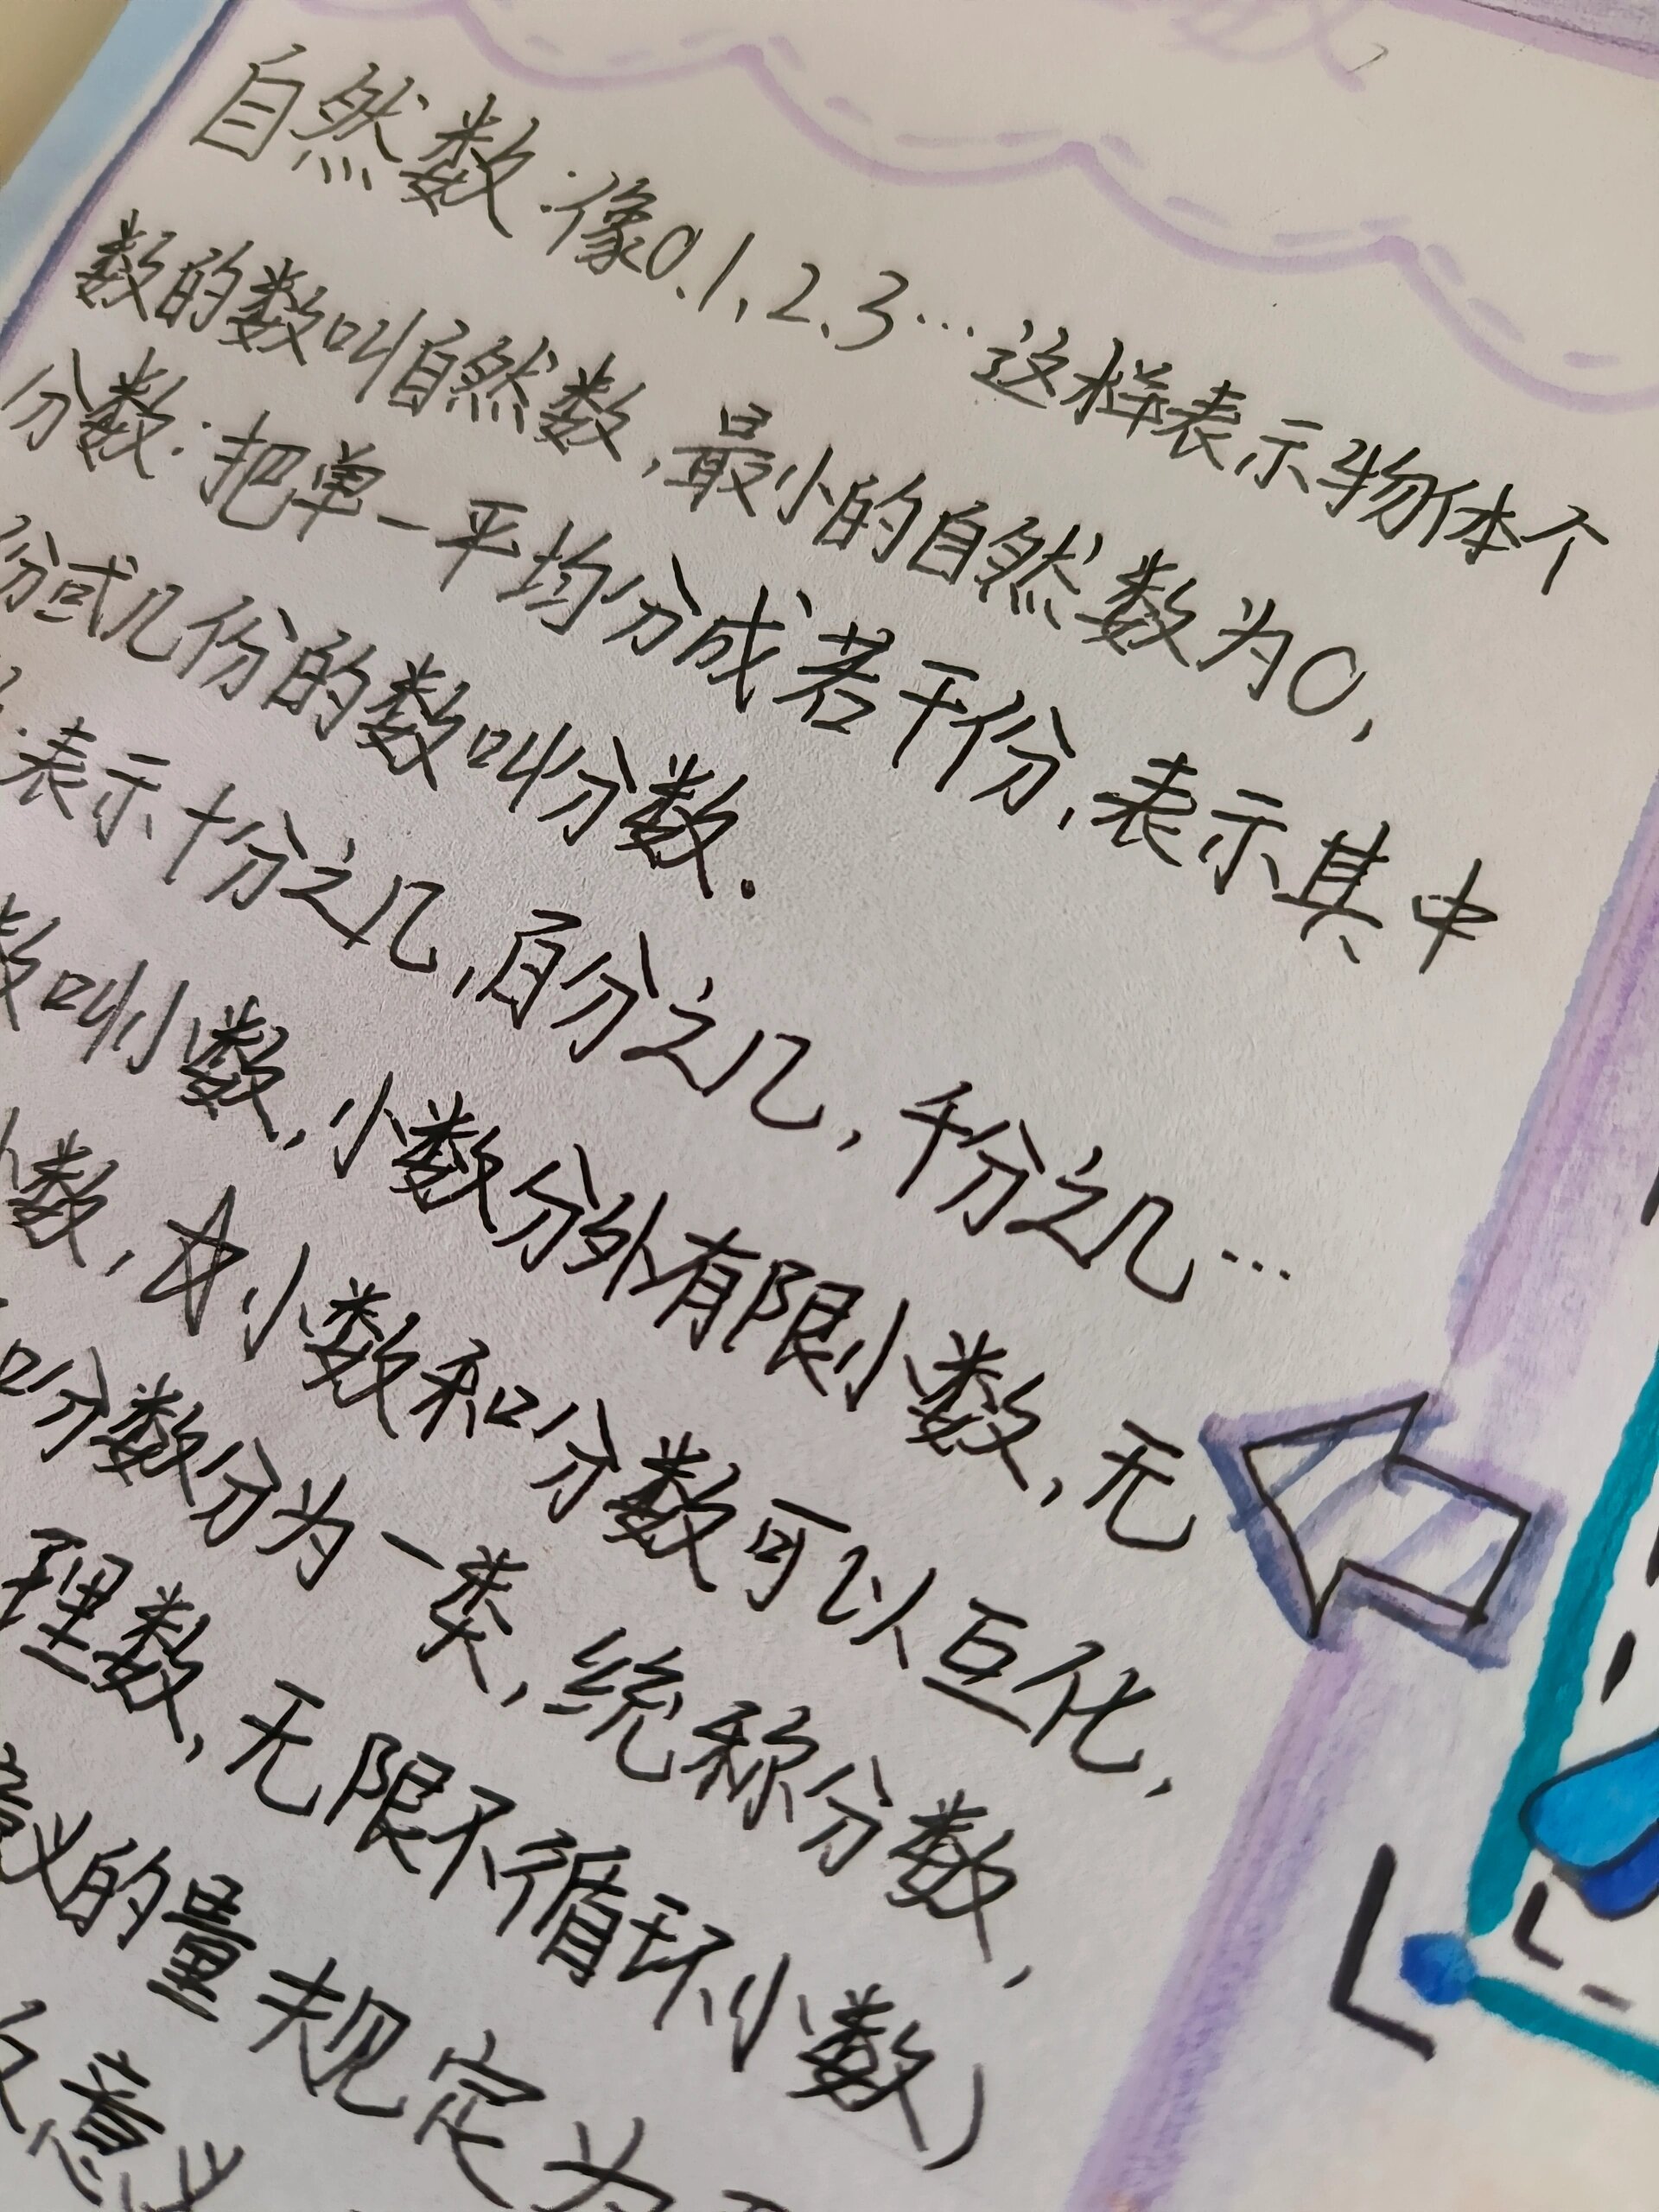 自然数:像0.1,2.3…这样表示物体个
数的数叫自然数,最小的自然数为0,
分数:把单一平均分成若干份,表示其中
份或几份的数叫分数.
表示十分之几,百分之几,千分之几…
数叫小数,小数分外有限小数,无
数,小数和分数可以互化,
分数分为一类,统称分数,
理数,无限不循环小数)
意义的量规定为
意义